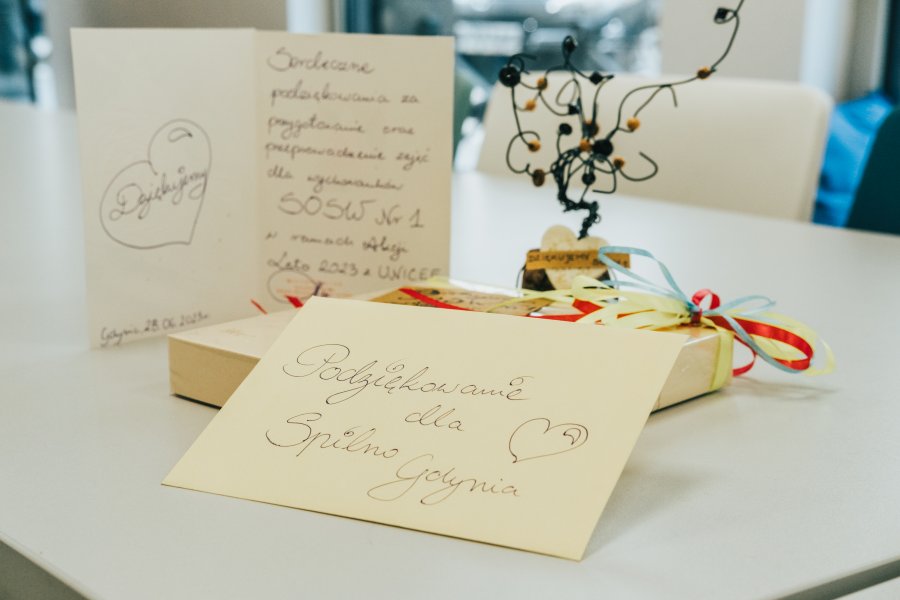 Dziękujemy
Gdynia, 28.06.2023r.
Serdeczne
podziękowania za
przygotowanie oraz
przeprowadzenie zajęć
dla wychowanków
SOSW Nr 1
w ramach Akcji
Lato 2023 z UNICEF
DZIĘKUJEMY
Podziękowanie
dla
Spilno
Gdynia